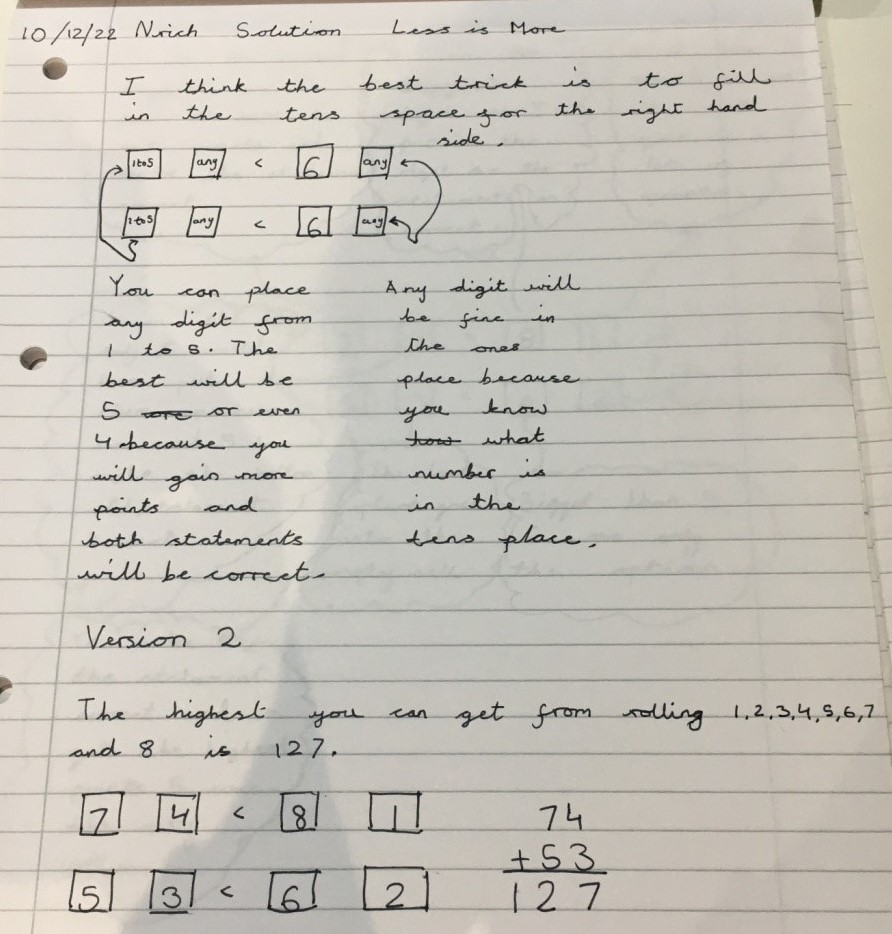 10/12/22 Nrich Solution Less is More
I think the best trick is to fill
in the tens space for the right hand
side.
1to5 any < 6 any
1to5 any < 6 any
You can place
any digit from
1 to 5. The
best will be
5 or even
4 because you
will gain more
points and
both statements
will be correct.
Any digit will
be fine in
the ones
place because
you know
what
number is
in the
tens place.
Version 2
The highest you can get from rolling 1,2,3,4,5,6,7
and 8 is 127.
7 4 < 8 1
5 3 < 6 2
74
+53
127